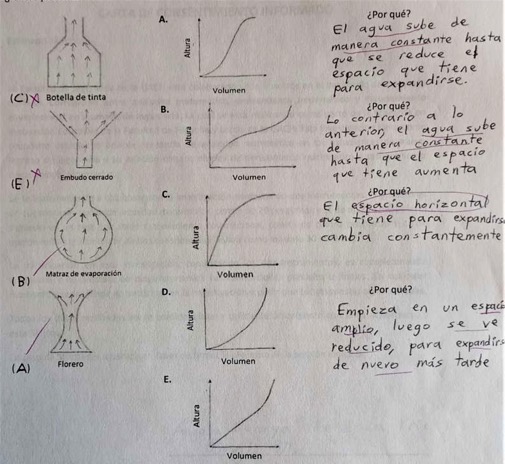 A.
Altura
Volumen
¿Por qué?
El agua sube de
manera constante hasta
que se reduce el
espacio que tiene
para expandirse.
(C) Botella de tinta
B.
Altura
Volumen
¿Por qué?
Lo contrario a lo
anterior, el agua sube
de manera constante
hasta que el espacio
que tiene aumenta
(E) Embudo cerrado
C.
Altura
Volumen
¿Por qué?
El espacio horizontal
que tiene para expandirs
cambia constantemente
(B) Matraz de evaporación
D.
Altura
Volumen
¿Por qué?
Empieza en un espacio
amplio, luego se ve
reducido, para expandirs
de nuevo más tarde
(A) Florero
E.
Altura
Volumen